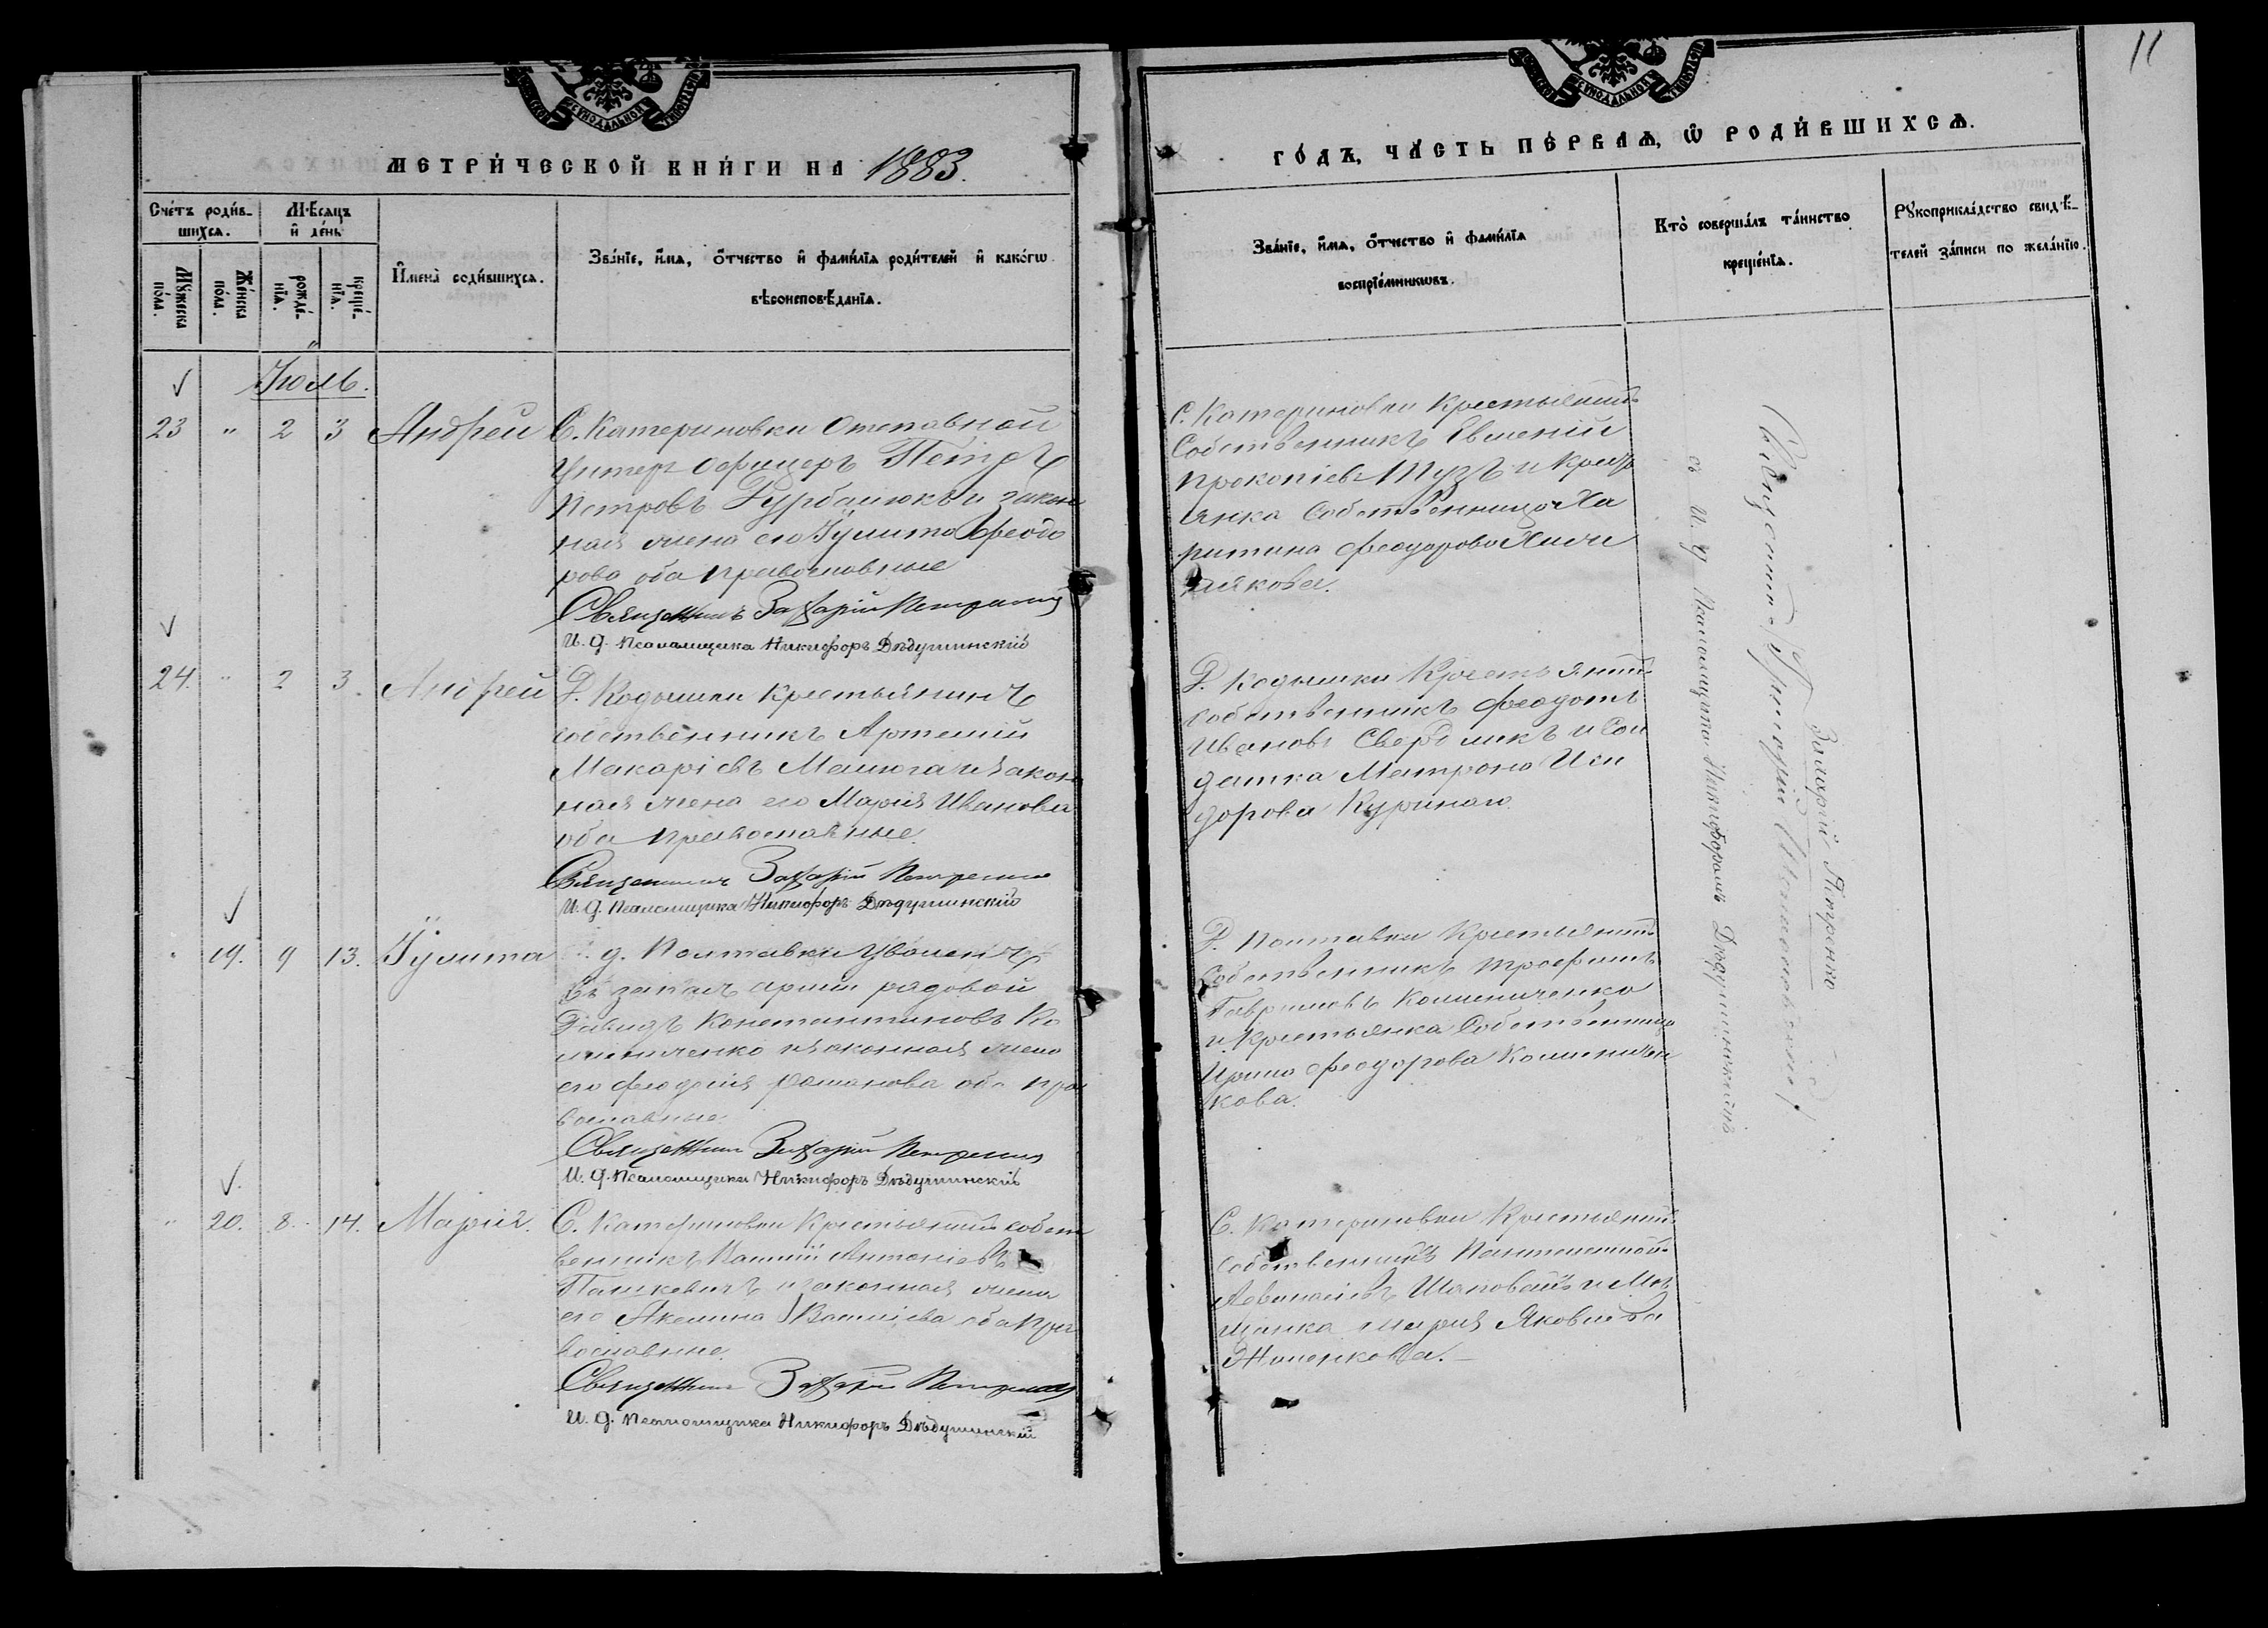 11
МЕТРИ́ЧЕСКОЙ КНИ́ГИ НА 1883.
ГО́ДЪ, ЧА́СТЬ ПЕ́РВАѦ, Ѡ҆ РОДИ́ВШИХСѦ.
Сче́тъ роди́в-
шихсѧ.
Мѣ́сѧцъ
и҆ де́нь
И҆мена̀ роди́вшихсѧ.
Зва́нїе, и҆́мѧ, ѻ҆́тчество и҆ фами́лїѧ роди́телей и҆ како́гѡ
вѣроисповѣ́данїѧ.
Мꙋ́жеска
по́ла.
Же́нска
по́ла.
рожде́-
нїѧ.
креще́-
нїѧ.
Зва́нїе, и҆́мѧ, ѻ҆́тчество и҆ фами́лїѧ
воспрїе́мникѡвъ.
Кто̀ соверша́лъ та́инство
креще́нїѧ.
Рꙋкоприкла́дство свидѣ́-
телей за́писи по жела́нїю.
Іюль.
23 " 2 3 Андрей С. Катериновки Отставной
Унтеръ Офицеръ Петръ
Петровъ и закон
ная жена его Іулита Феодо
рова оба православные
Священникъ Захарій Петренко
И. д. Псаломщика Никифоръ Дѣдушинскій
С. Катериновки Крестьянинъ
Собственникъ Евмений
Прокопіевъ Тузъ и Крест
янка Собственница Ха
ритина Феодорова
24. " 2 3. Андрей Д. Кодымки Крестьянинъ
собственникъ Артемий
Макаріевъ Малюга и закон
ная жена его Марія Иванова
оба православные.
Священникъ Захарій Петренко
И. д. Псаломщика Никифоръ Дѣдушинскій
Д. Кодымки Крестьянинъ
собственникъ Феодотъ
Ивановъ Свердликъ и Сол
датка Матрона Иси
дорова Куриная
" 19. 9 13. Іулита д. Полтавки Уволенъ
въ запасъ арміи рядовой
Давидъ Константиновъ Ко
и законная жена
его Феодосія Романова оба пра
вославные.
Священникъ Захарій Петренко
И. д. Псаломщика Никифоръ Дѣдушинскій
Д. Полтавки Крестьянинъ
Собственникъ Трофимъ
Гавриловъ
и Крестьянка Собственница
Ирина Феодорова
кова.
" 20. 8. 14. Марія. С. Катериновки Крестьянинъ собст
венникъ Василій Антоніевъ
Пашкевичъ и законная жена
его Акелина Василіева оба пра
вославные.
Священникъ Захарій Петренко
И. д. Псаломщика Никифоръ Дѣдушинскій
С. Катериновки Крестьянинъ
собственникъ Пантелеймонъ
Афанасіевъ Шаповалъ и Мѣ
щанка Марія Яковлева
Священникъ
Захарій Петренко
съ И. д. Псаломщика Никифоромъ Дѣдушинскимъ